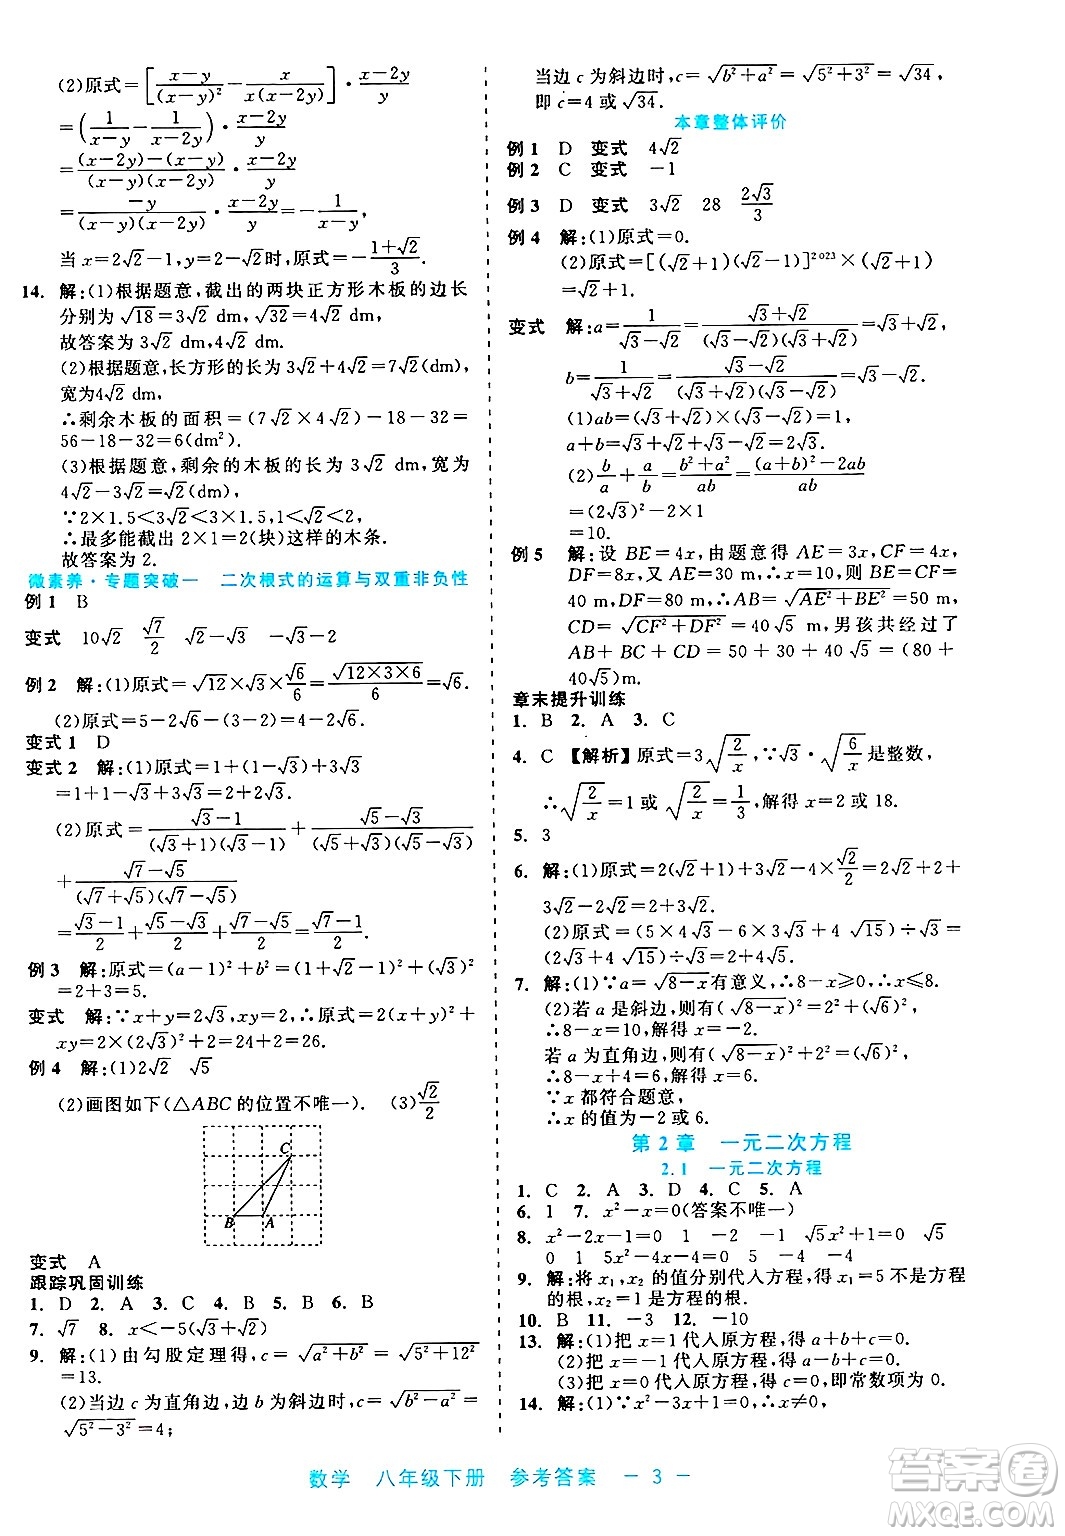 (2)原式=[(x-y)/(x-y)²-x/((x-y)(x-2y))]·(x-2y)/y
=(1/(x-y)-1/(x-y)·x/(x-2y))·(x-2y)/y
=((x-2y)-(x-y))/((x-y)(x-2y))·(x-2y)/y
=-y/((x-y)(x-2y))·(x-2y)/y=-1/(x-y),
当x=2√2-1,y=√2-2时,原式=-(1+√2)/3.
14. 解:(1)根据题意,截出的两块正方形木板的边长
分别为√18=3√2 dm,√32=4√2 dm,
故答案为3√2 dm,4√2 dm.
(2)根据题意,长方形的长为3√2+4√2=7√2 dm,
宽为4√2 dm,
∴剩余木板的面积=(7√2×4√2)-18-32=
56-18-32=6(dm²).
(3)根据题意,剩余的木板的长为3√2 dm,宽为
4√2-3√2=√2(dm),
∵2×1.5<3√2<3×1.5,1<√2<2,
∴最多能截出2×1=2(块)这样的木条.
故答案为2.
微素养·专题突破一 二次根式的运算与双重非负性
例1 B
变式 10√2 √7/2 √2-√3 -√3-2
例2 解:(1)原式=√12×√3×√6/6=√(12×3×6)/6=√6.
(2)原式=5-2√6-(3-2)=4-2√6.
变式1 D
变式2 解:(1)原式=1+(1-√3)+3√3
=1+1-√3+3√3=2+2√3.
(2)原式=(√3-1)/((√3+1)(√3-1))+(√5-√3)/((√5+√3)(√5-√3))
+(√7-√5)/((√7+√5)(√7-√5))
=(√3-1)/2+(√5-√3)/2+(√7-√5)/2=(√7-1)/2.
例3 解:原式=(a-1)²+b²=(1+√2-1)²+(√3)²
=2+3=5.
变式 解:∵x+y=2√3,xy=1,∴原式=(x+y)²+
xy=2×(2√3)²+2=24+2=26.
例4 解:(1)2√2 √5
(2)画图如下(△ABC的位置不唯一). (3)√2/2
C
B A
变式 A
跟踪巩固训练
1. D 2. A 3. C 4. B 5. B 6. B
7. √7 8. x<-5(√3+√2)
9. 解:(1)由勾股定理得,c=√(a²+b²)=√(5²+12²)
=13.
(2)当边c为直角边,边b为斜边时,c=√(b²-a²)=
√(5²-3²)=4;
当边c为斜边时,c=√(b²+a²)=√(5²+3²)=√34,
即c=4或√34.
本章整体评价
例1 D 变式 4√2
例2 C 变式 -1
例3 D 变式 3√2 28 2√3/3
例4 解:(1)原式=0.
(2)原式=[(√2+1)(√2-1)]²⁰²³×(√2+1)
=√2+1.
变式 解:a=1/(√3-√2)=(√3+√2)/((√3-√2)(√3+√2))=√3+√2,
b=1/(√3+√2)=(√3-√2)/((√3+√2)(√3-√2))=√3-√2.
(1)ab=(√3+√2)×(√3-√2)=1,
a+b=√3+√2+√3-√2=2√3.
(2)b/a+a/b=(b²+a²)/ab=((a+b)²-2ab)/ab
=(2√3)²-2×1
=10.
例5 解:设BE=4x,由题意得AE=3x,CF=4x,
DF=8x,又∵AE=30 m,∴x=10,∴BE=CF=
40 m,DF=80 m,∴AB=√(AE²+BE²)=50 m,
CD=√(CF²+DF²)=40√5 m,男孩共经过了
AB+BC+CD=50+30+40√5=(80+
40√5)m.
章末提升训练
1. B 2. A 3. C
4. C 【解析】原式=3√(2/x),∵√3·√(6/x)是整数,
∴√(2/x)=1或√(2/x)=1/3,解得x=2或18.
5. 3
6. 解:(1)原式=2(√2+1)+3√2-4×√2/2=2√2+2+
3√2-2√2=3√2+2.
(2)原式=(5×4√3-6×3√3+4√15)÷√3=
(2√3+4√15)÷√3=2+4√5.
7. 解:(1)∵a=√(8-x)有意义,∴8-x≥0,∴x≤8.
(2)若a是斜边,则有(√(8-x))²=(2)²+(√6)²,
∴8-x=10,解得x=-2.
若a为直角边,则有(√(8-x))²+2²=(√6)²,
∴8-x+4=6,解得x=6.
∵x都符合题意,
∴x的值为-2或6.
第2章 一元二次方程
2.1 一元二次方程
1. C 2. A 3. D 4. C 5. A
6. 1 7. x²-x=0(答案不唯一)
8. x²-x-2=0 1 -1 -2 √5x²+1=0 √5
0 1 5x²-6x=0 5 -6 0
9. 解:将x₁,x₂的值分别代入方程,得x₁=5不是原方程
的根,x₂=-2是方程的根.
10. B 11. -3 12. -10
13. 解:(1)把x=1代入原方程,得a+b+c=0.
(2)把x=-1代入原方程,得a-b+c=0.
(3)把x=0代入原方程,得c=0,即常数项为0.
14. 解:(1)∵x²-3x+1=0,
数学 八年级下册 参考答案 - 3 -
答案圈
MXQE.COM